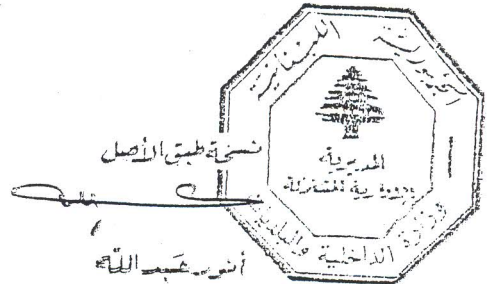 الجمهورية اللبنانية
المديرية
المشتركة
وزارة الداخلية والبلديات
نسخة طبق الأصل
أنور عبد الله